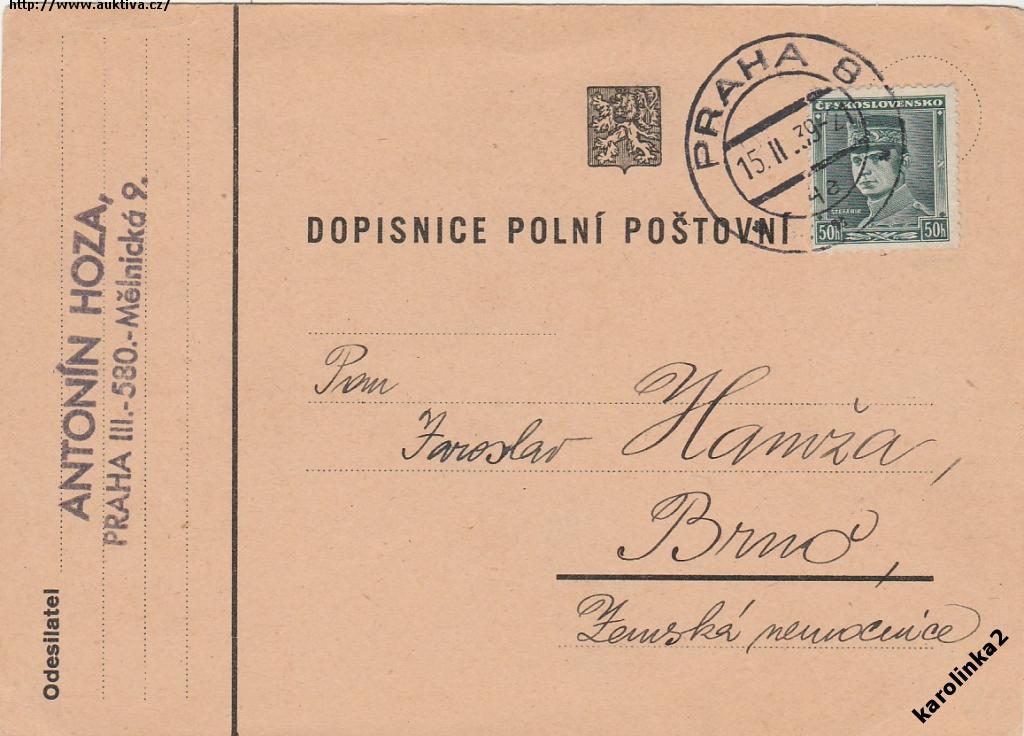 http://www.auktiva.cz/
PRAHA 8
15.II.39
4a
ČESKOSLOVENSKO
ŠTEFÁNIK
50h 50h
DOPISNICE POLNÍ POŠTOVNÍ
Odesilatel
ANTONÍN HOZA,
PRAHA III.-580.-Mělnická 9.
Pan
Jaroslav Hamža,
Brno,
Zemská nemocnice
karolinka2